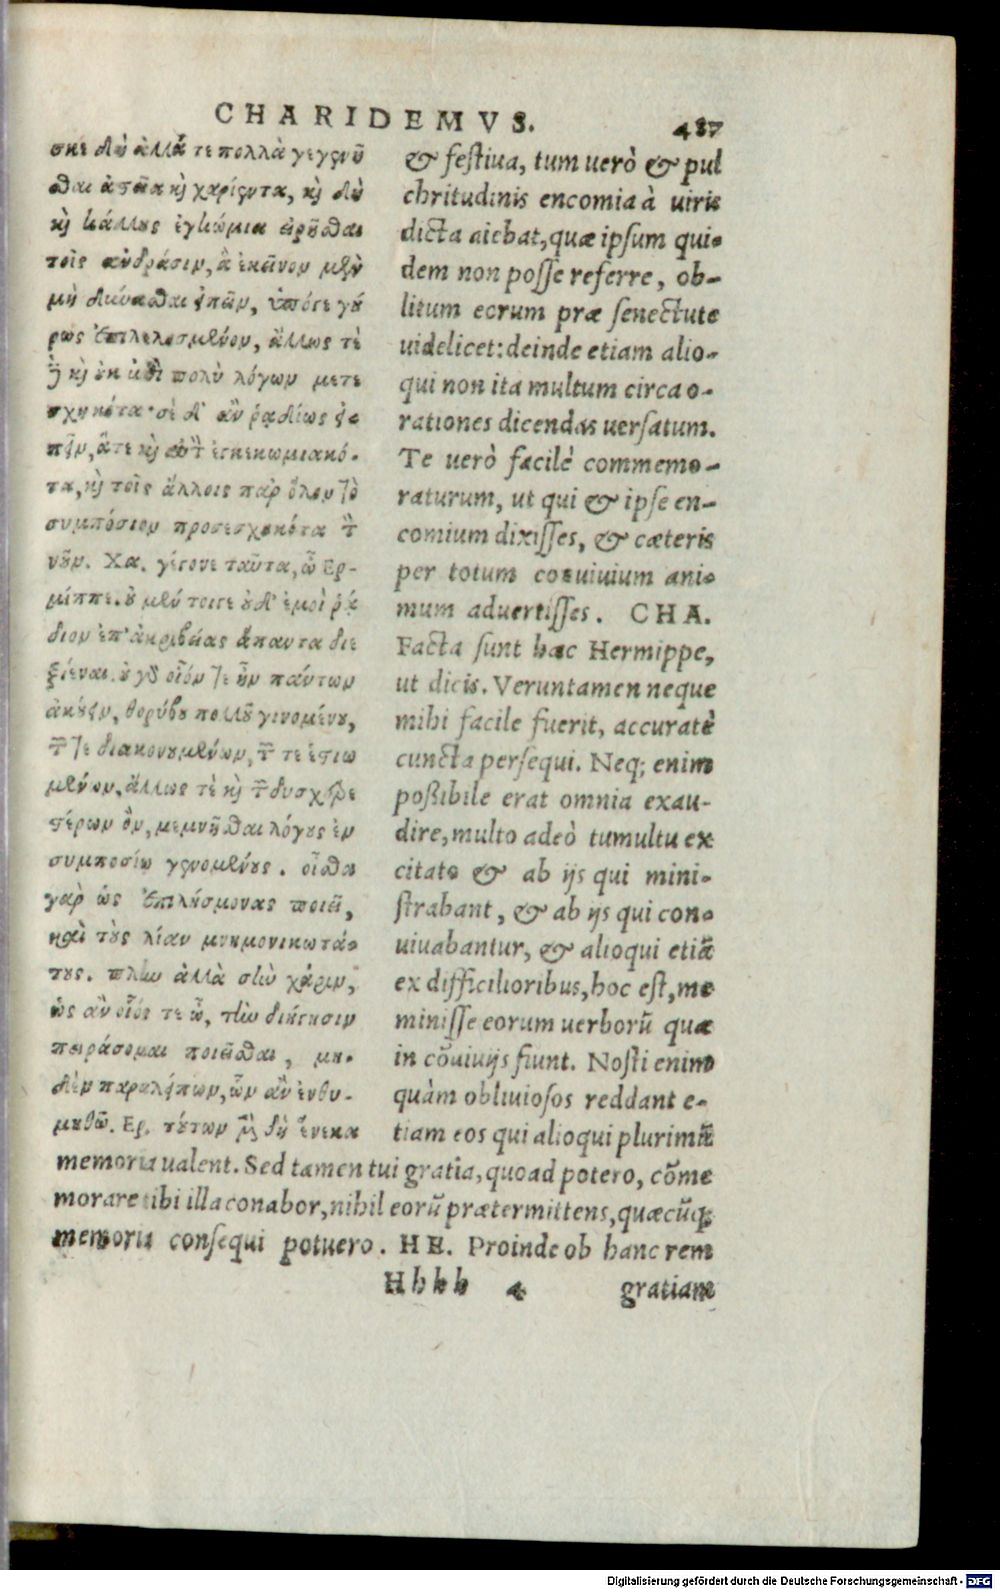 CHARIDEMVS. 487
σκε δὴ ἀλλά τε πολλὰ γεγενῆ
σθαι ἀστεῖα καὶ χαρίεντα, καὶ δὴ
καὶ κάλλους ἐγκώμια εἰρῆσθαι
τοῖς ἀνδράσιν, ἃ ἐκεῖνον μὲν
μὴ δύνασθαι εἰπεῖν, ὑπό τε γή
ρως ἐπιλελησμένον, ἄλλως τὲ
καὶ οὐκ ἐπὶ πολὺ λόγων μετε
σχηκότα· σὲ δ' ἂν ῥᾳδίως εἰ
πεῖν, ἅτε καὶ αὐτὸν ἐγκεκωμιακό-
τα, καὶ τοῖς ἄλλοις παρ' ὅλον τὸ
συμπόσιον προσεσχηκότα τὸν
νοῦν. Χα. γέγονε ταῦτα, ὦ Ερ-
μίππε. οὐ μέν τοιγε οὐδ' ἐμοὶ ῥᾴ
διον ἐπ' ἀκριβείας ἅπαντα διε
ξιέναι. οὐ γὰρ οἷόν τε ἦν πάντων
ἀκούειν, θορύβου πολλοῦ γινομένου,
τῶν τε διακονουμένων, τῶν τε ἑστιω
μένων, ἄλλως τὲ καὶ τῶν δυσχερε
στέρων ὂν, μεμνῆσθαι λόγους ἐν
συμποσίῳ γενομένους. οἶσθα
γὰρ ὡς ἐπιλήσμονας ποιεῖ,
καὶ τοὺς λίαν μνημονικωτά-
τους. πλὴν ἀλλὰ σὴν χάριν,
ὡς ἂν οἷός τε ὦ, τὴν διήγησιν
πειράσομαι ποιεῖσθαι, μη-
δὲν παραλείπων, ὧν ἂν ἐνθυ-
μηθῶ. Ερ. τούτων μὲν δὴ ἕνεκα
& festiua, tum uerò & pul
chritudinis encomia à uiris
dicta aiebat, quæ ipsum qui-
dem non posse referre, ob-
litum eorum præ senectute
uidelicet: deinde etiam alio-
qui non ita multum circa o-
rationes dicendas uersatum.
Te uerò facilè commemo-
raturum, ut qui & ipse en-
comium dixisses, & cæteris
per totum conuiuium ani-
mum aduertisses. CHA.
Facta sunt hæc Hermippe,
ut dicis. Veruntamen neque
mihi facile fuerit, accuratè
cuncta persequi. Neq; enim
poßibile erat omnia exau-
dire, multo adeò tumultu ex
citato & ab ijs qui mini-
strabant, & ab ijs qui con-
uiuabantur, & alioqui etiã
ex difficilioribus, hoc est, me
minisse eorum uerborũ quæ
in cõuiuijs fiunt. Nosti enim
quàm obliuiosos reddant e-
tiam eos qui alioqui plurimũ
memoria ualent. Sed tamen tui gratia, quoad potero, cõme
morare tibi illa conabor, nihil eorũ prætermittens, quæcũq;
memoria consequi potuero. HE. Proinde ob hanc rem
Hhhh 4 gratiam
Digitalisierung gefördert durch die Deutsche Forschungsgemeinschaft - DFG